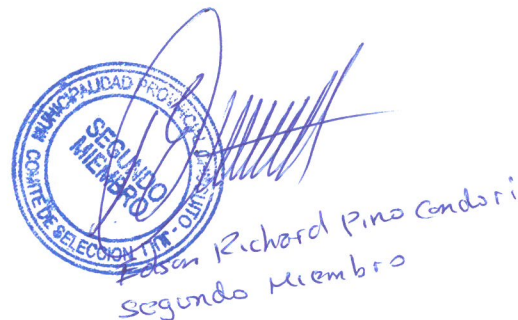 MUNICIPALIDAD PROVINCIAL
COMITE DE SELECCION
SEGUNDO
MIEMBRO
Edson Richard Pino Condori
Segundo Miembro